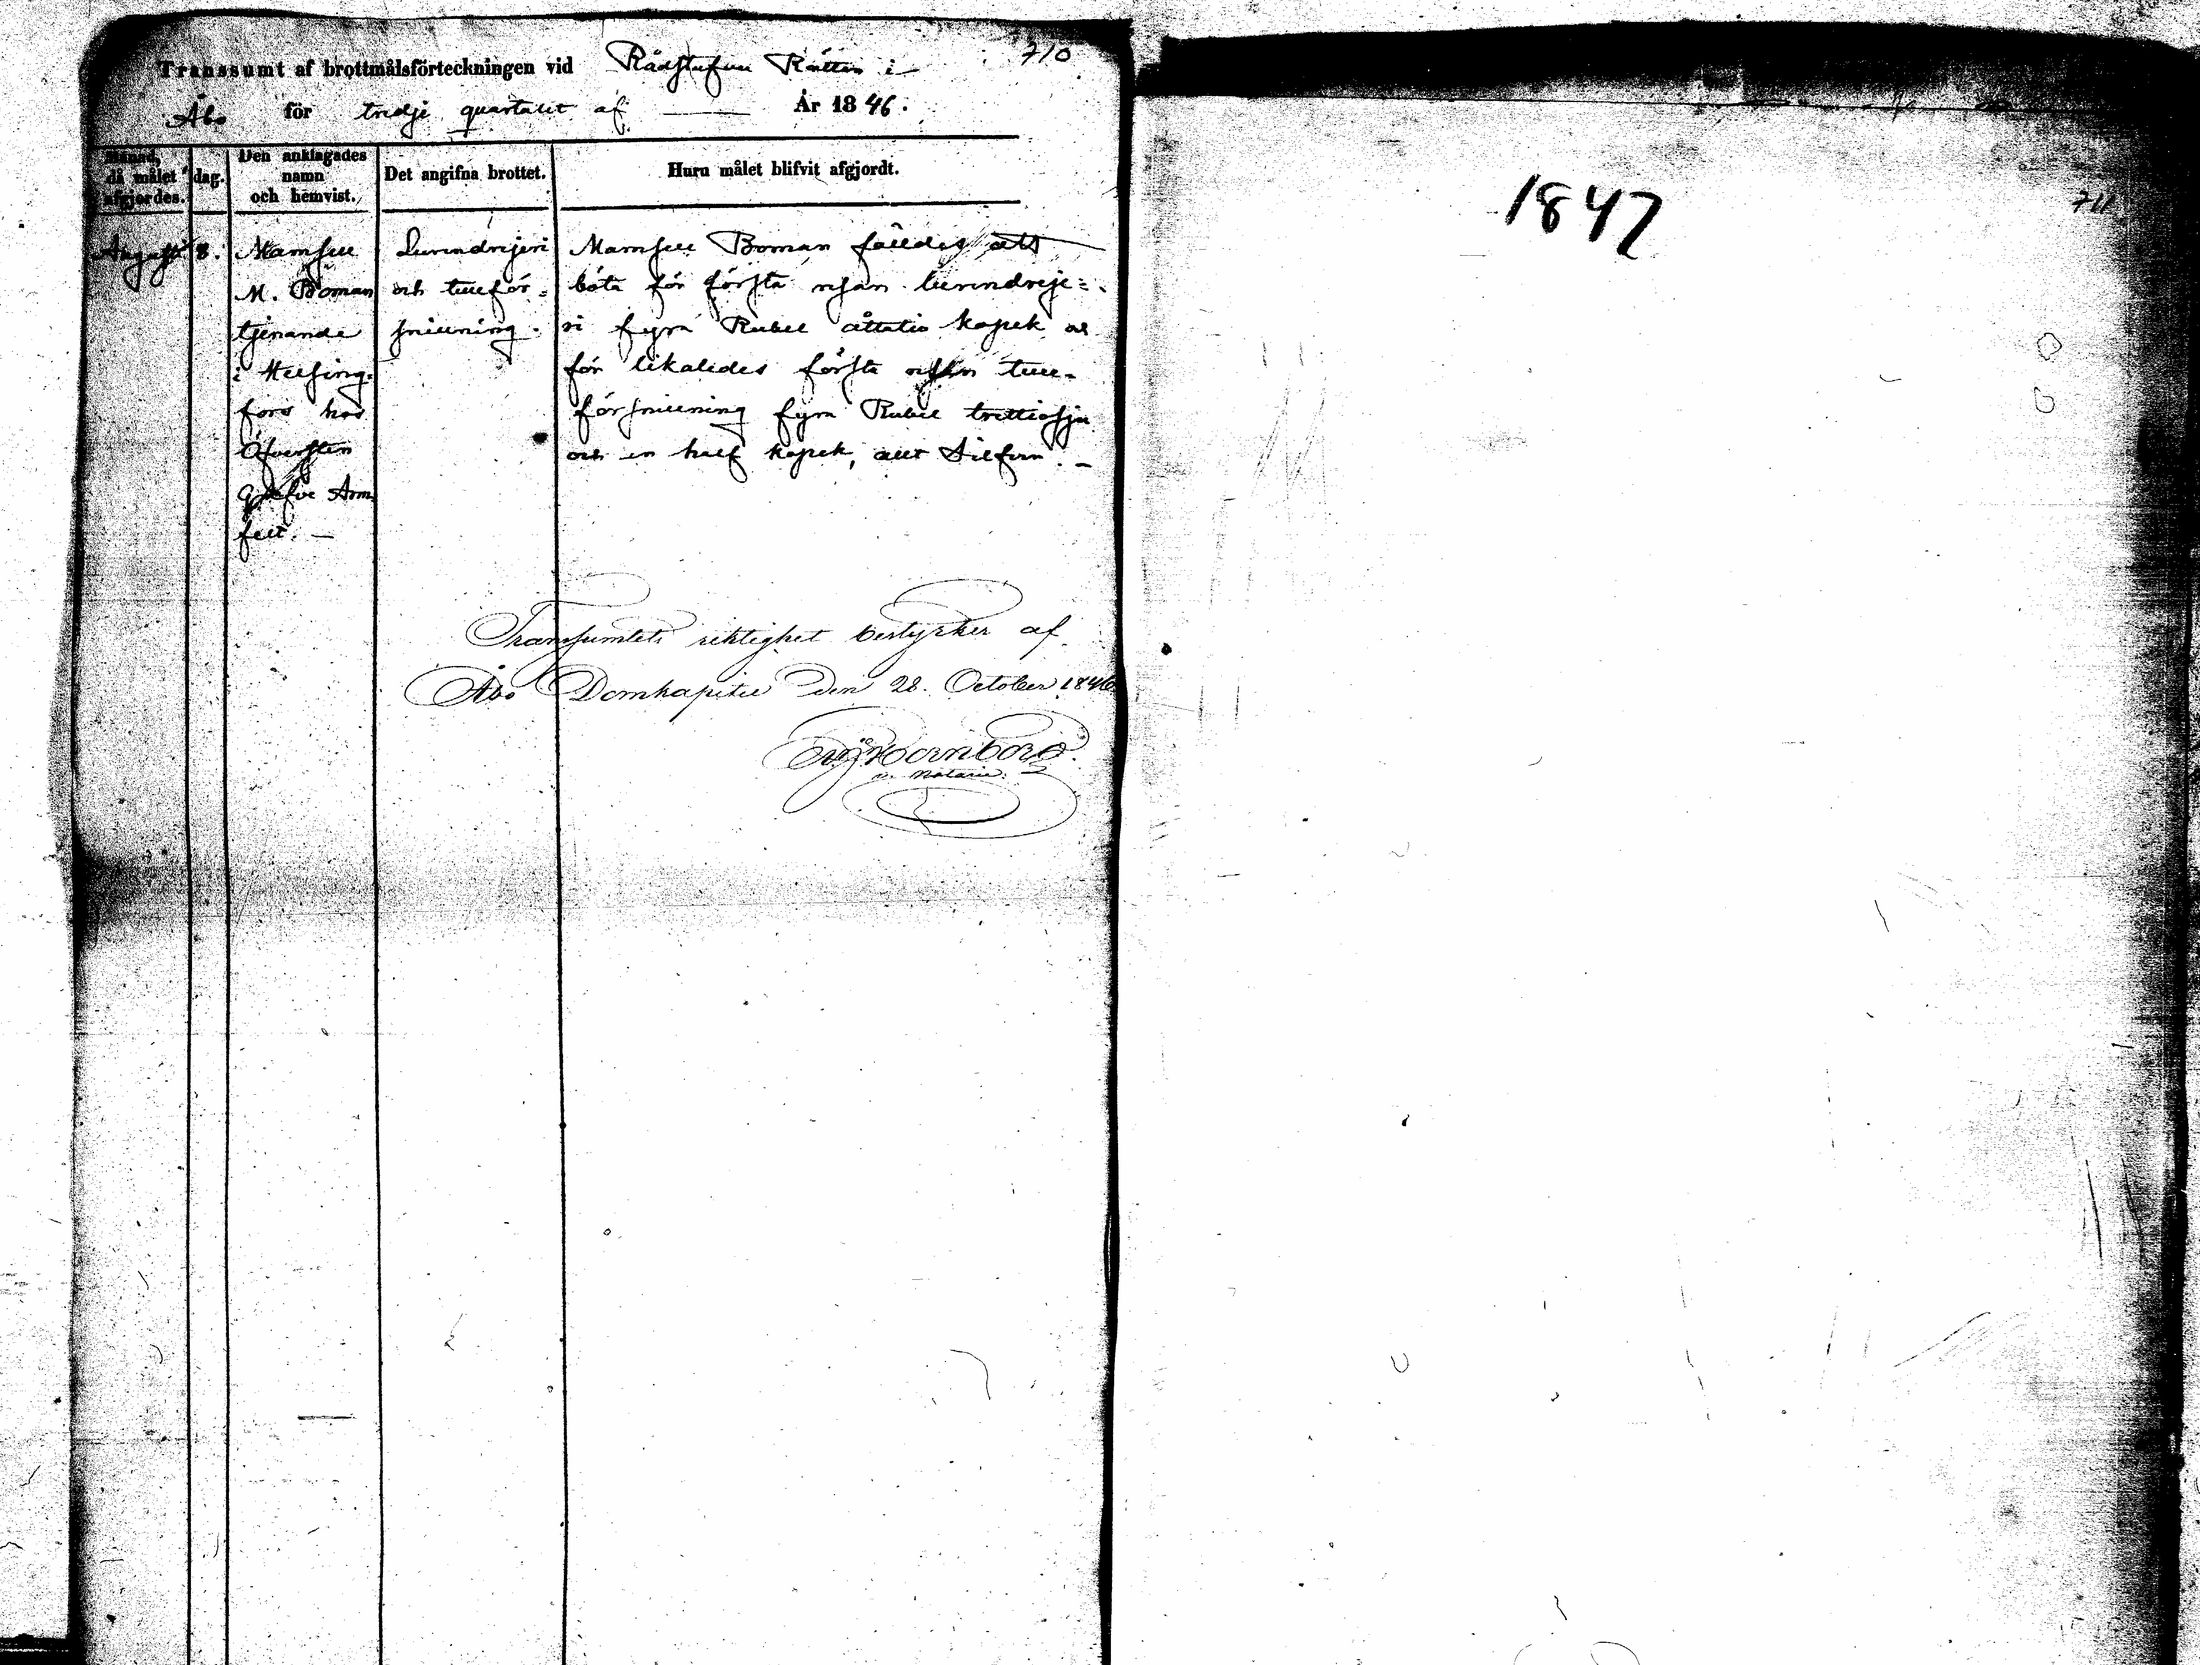 710
Transsumt af brottmålsförteckningen vid Rådstufvu Rätten i
Åbo för tredje quartalet af År 1846.
Månad, då målet afgjordes.
dag.
Den anklagades namn och hemvist.
Det angifna brottet.
Huru målet blifvit afgjordt.
Augusti
8.
Mamsell
M. Boman
tjenande
i Helsing-
fors hos
Öfversten
Grefve Arm
felt. —
Lurendrejeri
och tullför-
snillning.
Mamsell Boman fälldes att
böta för första resan lurendreje-
ri fyra Rubel åttatio kopek och
för likaledes första resan tull-
försnillning fyra Rubel trettiosju
och en half kopek, allt Silfver. —
Transsumtets riktighet bestyrker af
Åbo Domkapitel den 28. October 1846
Hornborg.
v. Notarie.
711
1847